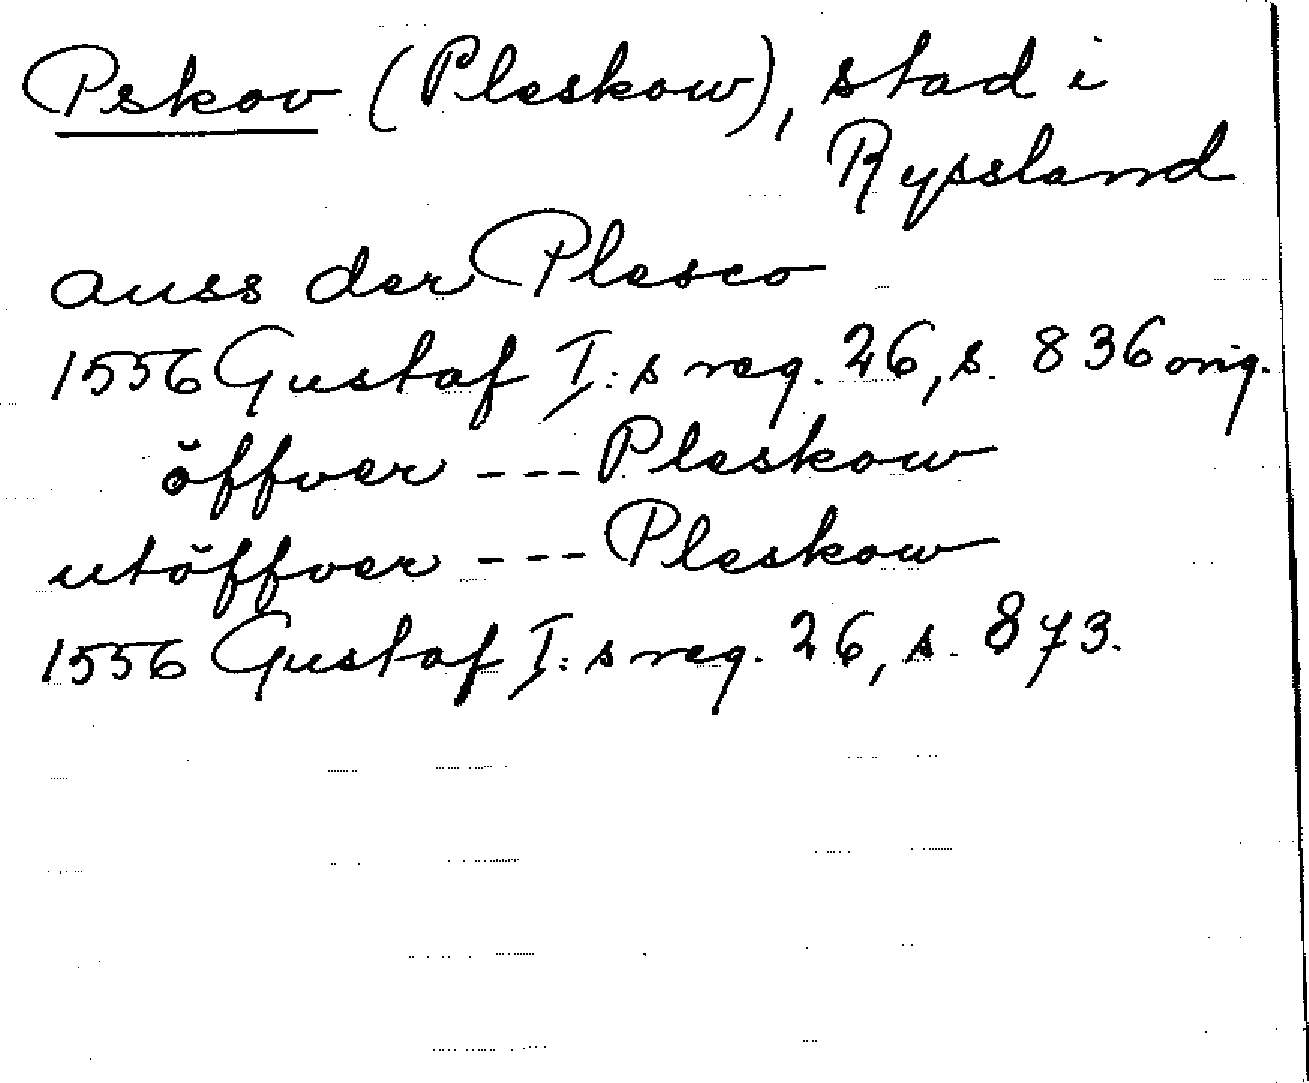 Pskov (Pleskow), stad i
Ryssland
auss der Plesco
1556 Gustaf I:s reg. 26, s. 836 orig.
öffver --- Pleskow
utöffver --- Pleskow
1556 Gustaf I:s reg. 26, s. 873.